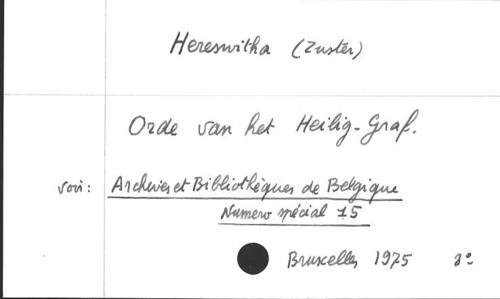 Hereswitha (Zuster)
Orde van het Heilig-Graf.
voir: Archives et Bibliothèques de Belgique
Numero spécial 15
Bruxelles 1975 8°